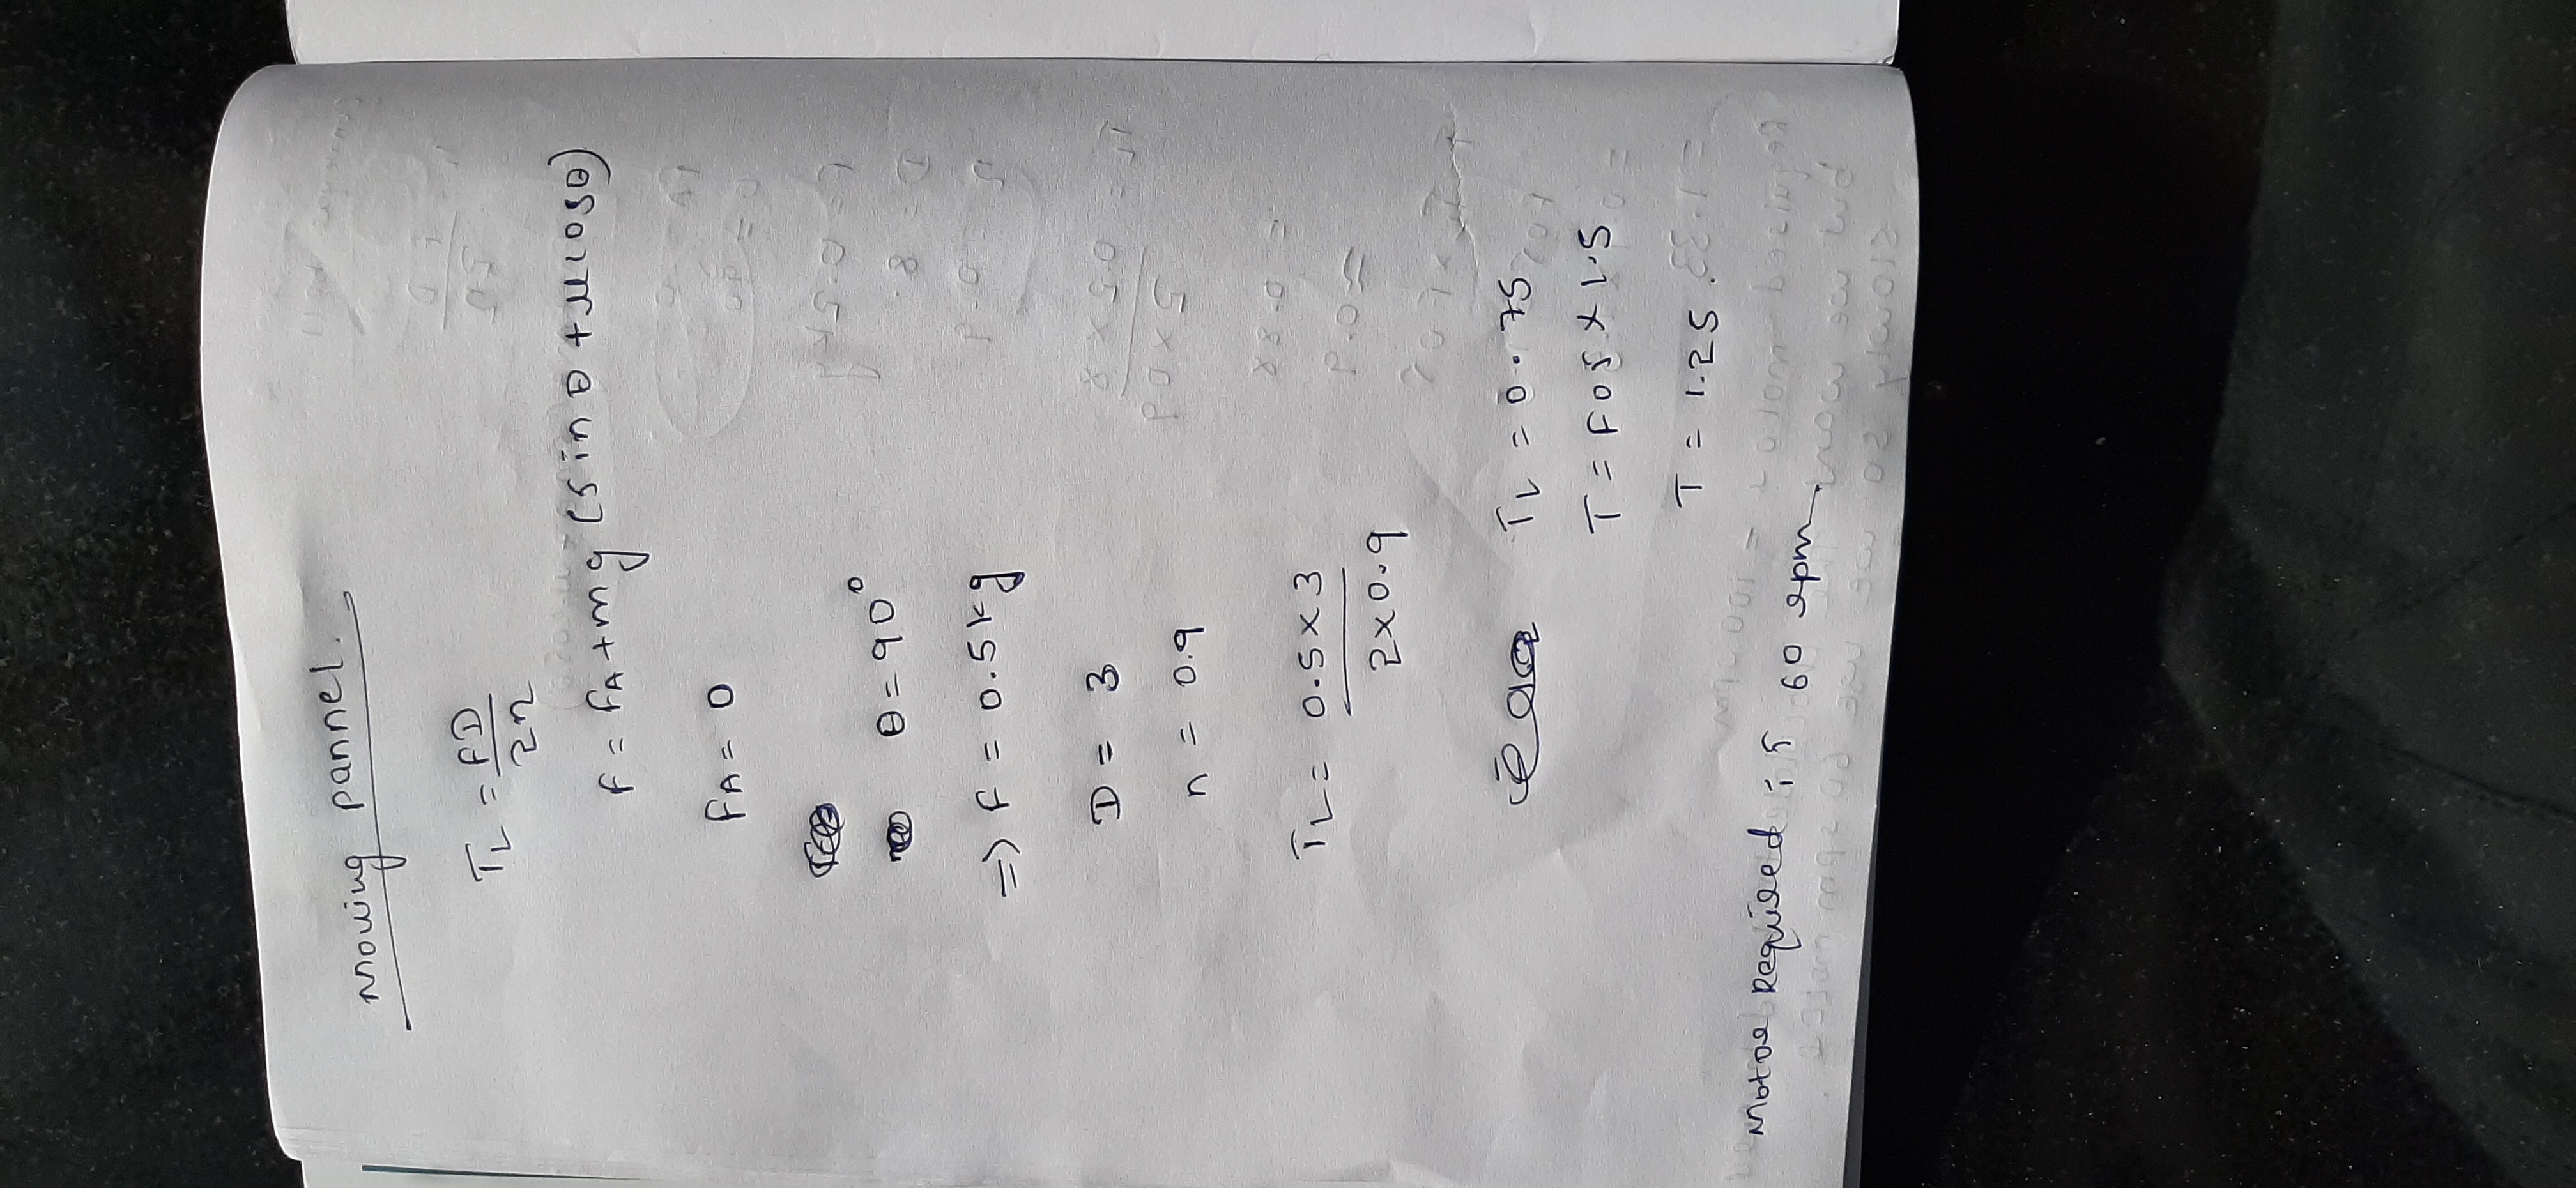 Moving pannel.
TL = FD / 2η
F = FA + mg (sin θ + μ cos θ)
FA = 0
θ = 90°
=> F = 0.5 kg
D = 3
n = 0.9
TL = 0.5 × 3 / 2 × 0.9
TL = 0.75
T = FOS × 1.5
T = 1.25.
Motor Required is 60 rpm.